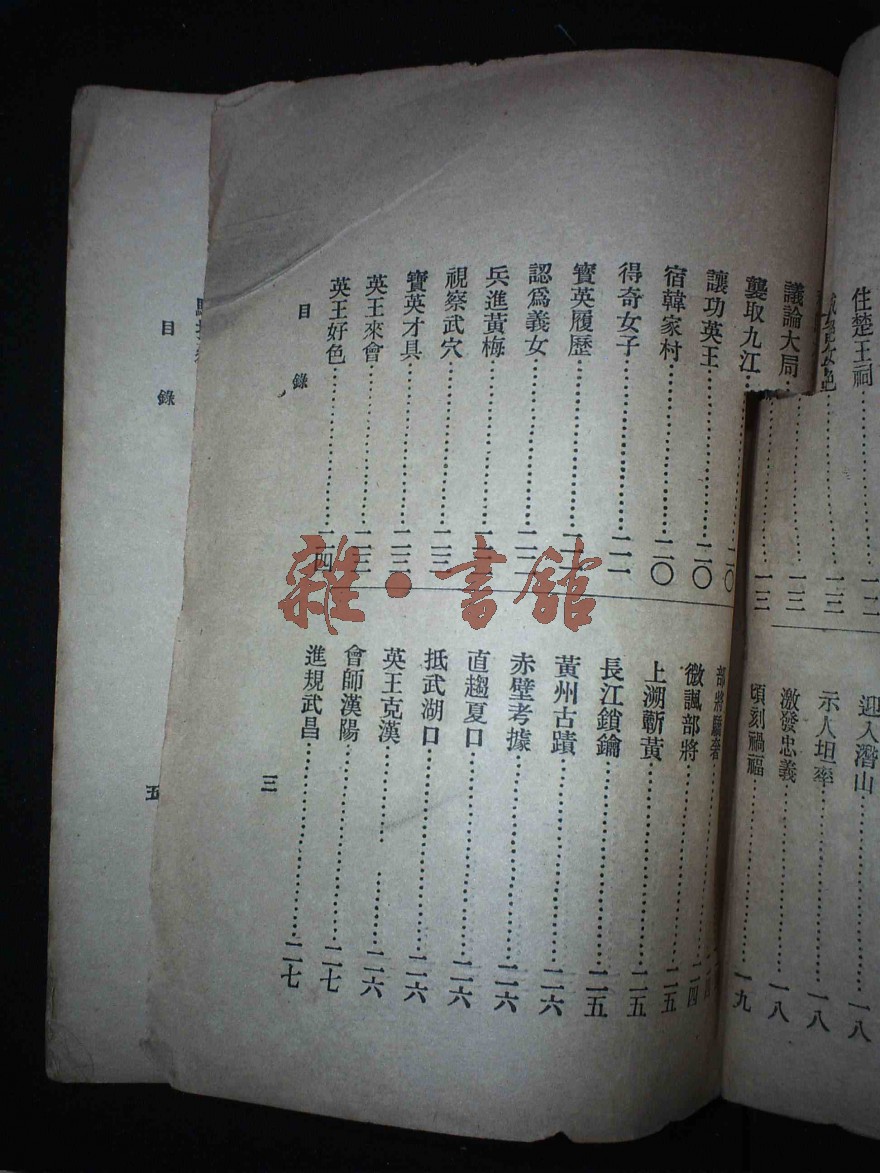 住楚王祠……一二
議論大局……一三
襲取九江……二〇
讓功英王……二〇
宿韓家村……二〇
得奇女子……二一
寶英履歷……二一
認爲義女……二二
兵進黃梅……二二
視察武穴……二三
寶英才具……二三
英王來會……二三
英王好色……二四
迎入潛山……一八
示人坦率……一八
激發忠義……一八
頃刻禍福……一九
微諷部將……二四
上溯蘄黃……二五
長江鎖鑰……二五
黃州古蹟……二六
赤壁考據……二六
直趨夏口……二六
抵武湖口……二六
英王克漢……二六
會師漢陽……二七
進規武昌……二七
目錄
三
目錄
五
雜·書館